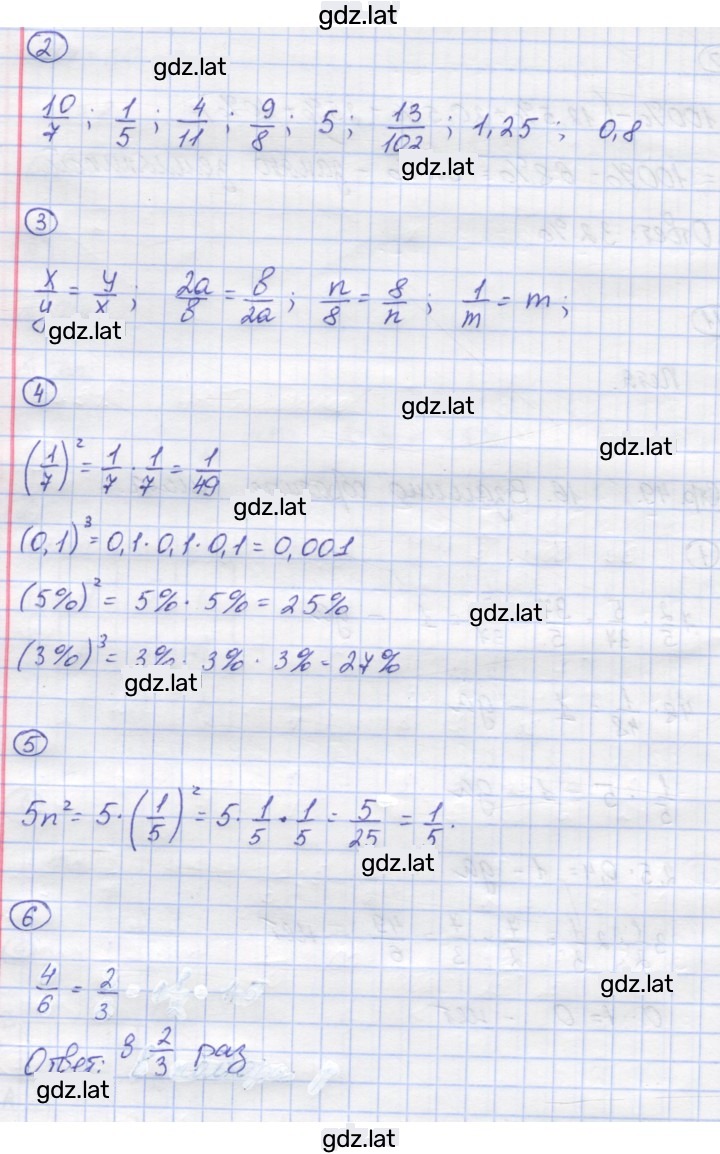 gdz.lat
2
gdz.lat
10/7 ; 1/5 ; 4/11 ; 9/8 ; 5 ; 13/102 ; 1,25 ; 0,8
gdz.lat
3
x/y = y/x ; 2a/в = в/2a ; n/8 = 8/n ; 1/m = m ;
gdz.lat
4
gdz.lat
gdz.lat
(1/7)² = 1/7 · 1/7 = 1/49
gdz.lat
(0,1)³ = 0,1 · 0,1 · 0,1 = 0,001
(5%)² = 5% · 5% = 25%
gdz.lat
(3%)³ = 3% · 3% · 3% = 27%
gdz.lat
5
5n² = 5 · (1/5)² = 5 · 1/5 · 1/5 = 5/25 = 1/5.
gdz.lat
6
4/6 = 2/3
gdz.lat
Ответ: в 2/3 раз
gdz.lat
gdz.lat